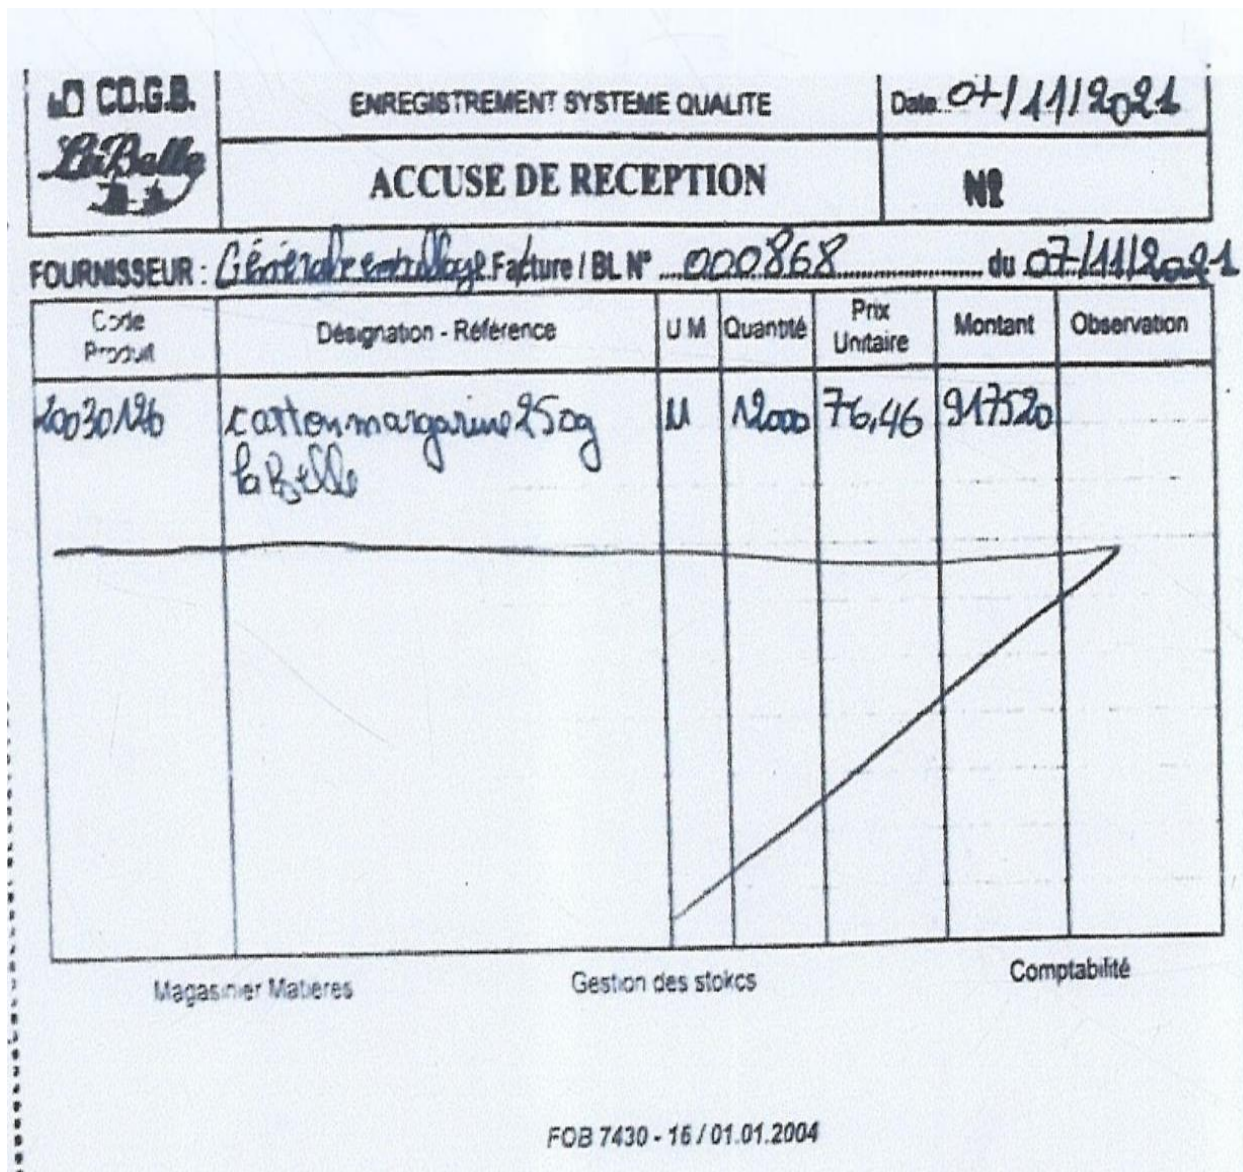 CO.G.B.
La Belle
ENREGISTREMENT SYSTEME QUALITE
Date 07/11/2021
ACCUSE DE RECEPTION
N°
FOURNISSEUR : Générale emballage Facture / BL N° 000868 du 07/11/2021
Code Produit Désignation - Référence U M Quantité Prix Unitaire Montant Observation
20030126 carton margarine 250g U 12000 76,46 917520
la Belle
Magasinier Matieres Gestion des stokcs Comptabilité
FOB 7430 - 16 / 01.01.2004